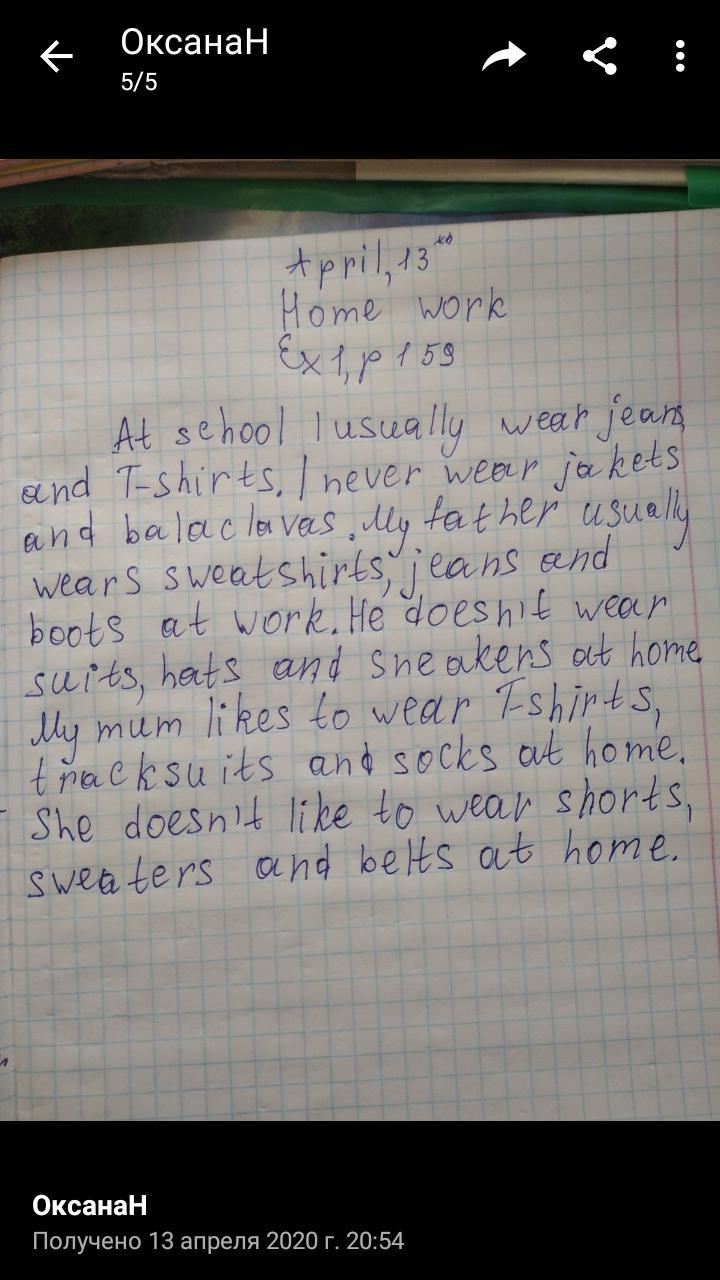 ОксанаН
5/5
April, 13th
Home work
Ex 1, p 159
At school I usually wear jeans
and T-shirts. I never wear jakets
and balaclavas. My father usually
wears sweatshirts, jeans and
boots at work. He doesn't wear
suits, hats and sneakers at home.
My mum likes to wear T-shirts,
tracksuits and socks at home.
She doesn't like to wear shorts,
sweaters and belts at home.
ОксанаН
Получено 13 апреля 2020 г. 20:54